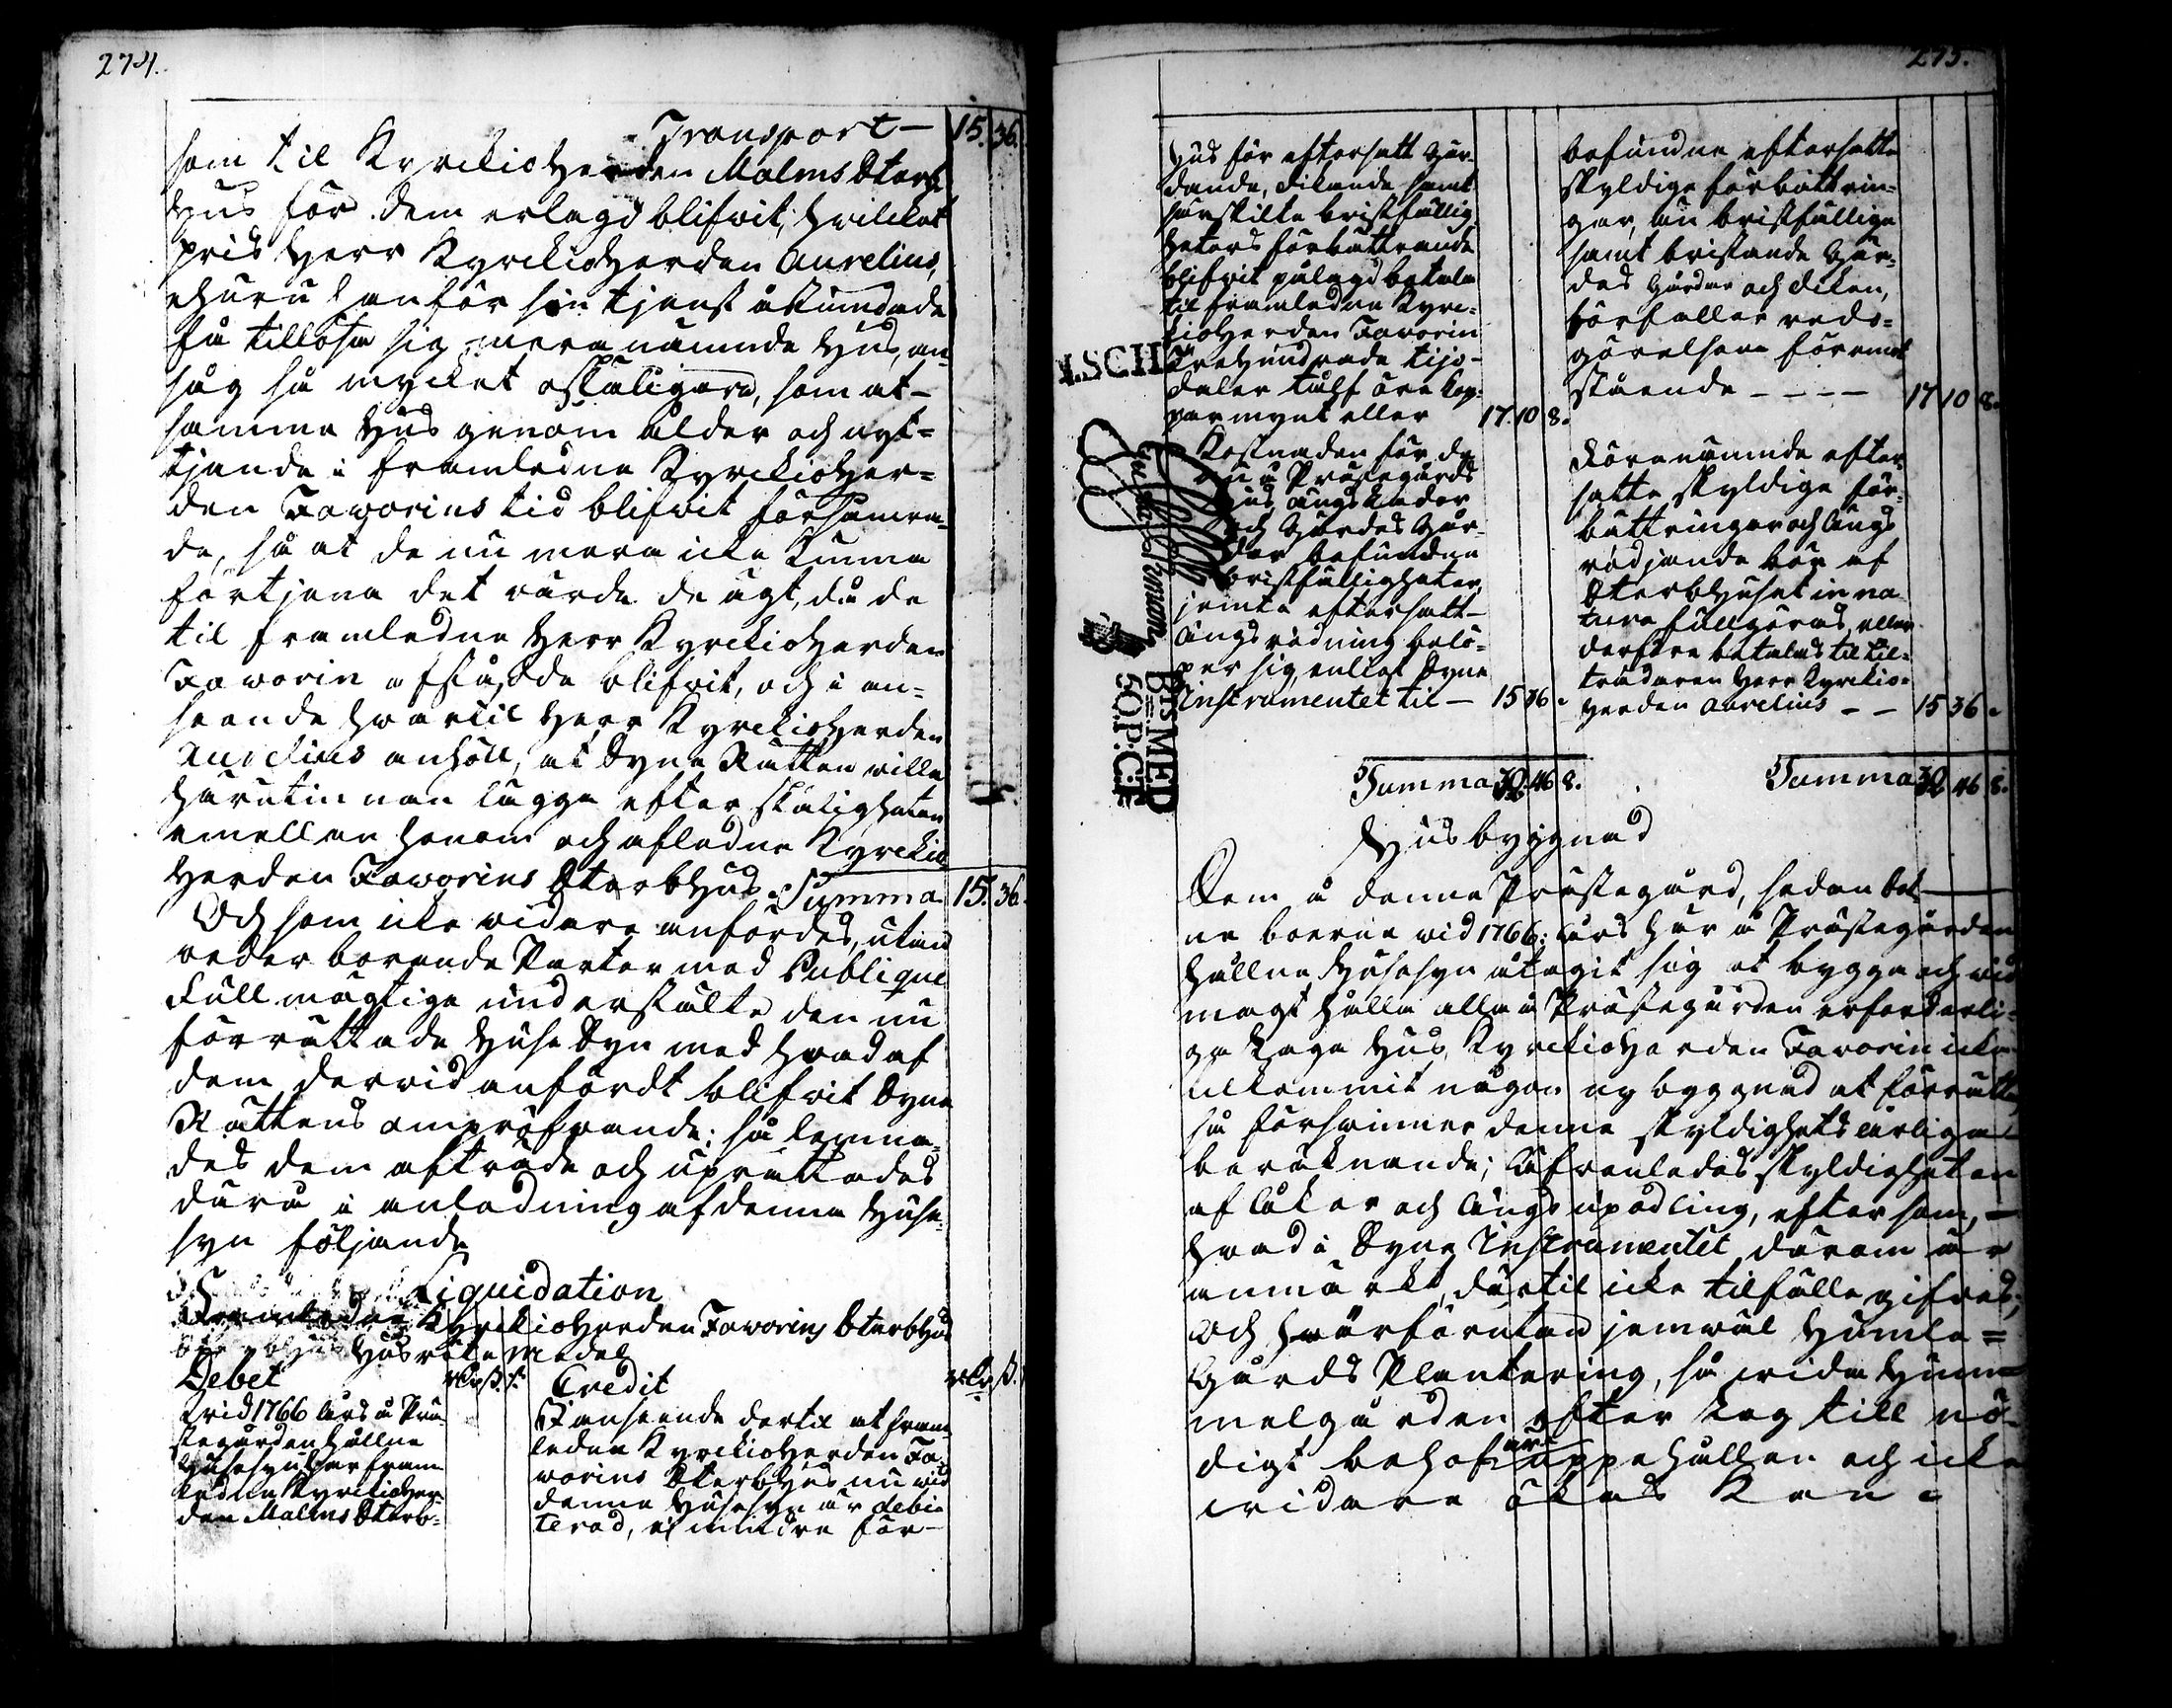 274.
Transport — 15. 36.
som til KyrckioHerden Malms Sterb-
Hus för dem erlagd blifvit; hvilcket
pris Herr KyrckioHerden Aurelius,
ehuru han för sin tjenst åstundade
få tillösa sig mera nämnde Hus, an-
såg så mycket oskäligare, som at-
samma Hus genom ålder och nyt-
tjande i framledne KyrckioHer-
den Faworins tid blifvit försämra-
de, så at de nu mera icke kunna
förtjena det värde de ägt, då de
til framledne Herr KyrckioHerden
Faworin afståدde blifvit, och i an-
seende hvartil Herr KyrckioHerden
Aurelius anhöll, at Syne Rätten ville
härutinnan lägga efter skäligheten
emellan honom och afledne Kyrckio-
Herden Faworins SterbHus. Summa 15. 36.
Och som icke vidare anfördes, utan
vederborande Parter med Publique
Fullmägtige understälte den nu
förrättade HuseSyn med hvad af
dem dervid anfördt blifvit Syne
Rättens ompröfvande; så lemna-
des dem afträde och uprättades
därå i anledning af denna Huse-
syn följande
Liquidation
Framledne KyrckioHerden Faworins SterbHus
Husröte Medel
Debet
Credit
Vid 1766 års å Prä-
stegården hållne
Husesyn har fram-
ledne KyrckioHer-
den Malms Sterb-
I anseende dertil at fram-
ledne KyrckioHerden Fa-
worins SterbHus nu vid
denna Husesyn är debi-
terad, ej mindre för-
275.
Hus för eftersatt Gär-
dande, dikande samt
särskilte bristfällig-
heters förbättrande
blifvit pålagd betala
til framledne Kyrc-
kioHerden Faworin
Trehundrade tijo-
daler tålf öre Kop-
parmynt eller 17. 10 8.
Kostnaden för de
nu å Prästegårds
Hus ängslador
och Gärdes Går-
dar befundne
bristfälligheter
jemte eftersatt-
ängsrödning belö-
per sig enligt Syne
Instrumentet til — 15 36 .
Summa 32. 46 8.
befundne eftersatte
skyldige förbättrin-
gar, än bristfällige
samt bristande Gär-
des Gårdar och diken,
förfaller redo-
görelsen föremot
stående - - - - 17 10 8.
Förenämnde efter-
satte skyldige för-
bättringar och ängs
rödjande bör af
SterbHuset in na-
tura fullgöras, eller
derföre betalas til til-
trädaren Herr Kyrckio-
herden Aurelius - - 15 36 .
Summa 32 46 8.
LSCH
BIS MED
5.O.P.C.F
Husbyggnad
Som å denna Prästegård, sedan Sok-
ne boerne vid 1766: års här å Prästegården
hållne Husesyn åtagit sig at bygga och vid
magt hålla alla å Prästegården erforderli-
ga Laga Hus, KyrckioHerden Faworin icke
ålkommit någon ny byggnad at förrätta
så försvinner denna skyldighets årliga
beräknande; Äfvenledes skyldigheten
af Åker och Ängs upodling, efter som, —
hvad i Syne Instrumentet därom är
anmärkt, därtil icke tilfälle gifves;
och hvarförutan jemväl Humle=
Gårds Plantering, så vida Hum-
melgården efter Lag till nö-
digt behof är uppehållen och icke
vidare ökas Kan.